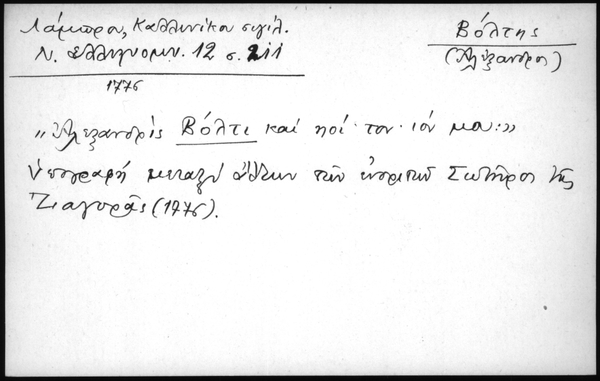 Λάμπρου, Καλλινίκου σιγίλ.
Ν. Ελληνομν. 12 σ. 211
1776
Βόλτης
(Αλέξανδρος)
"Αλεξανδρὶς Βόλτι καὶ ποί· τον· ιόν μου:"
Ὑπογραφή μεταξύ ἄλλων τῶν Σωτῆρος τῆς
Ζιαγορᾶς (1776).